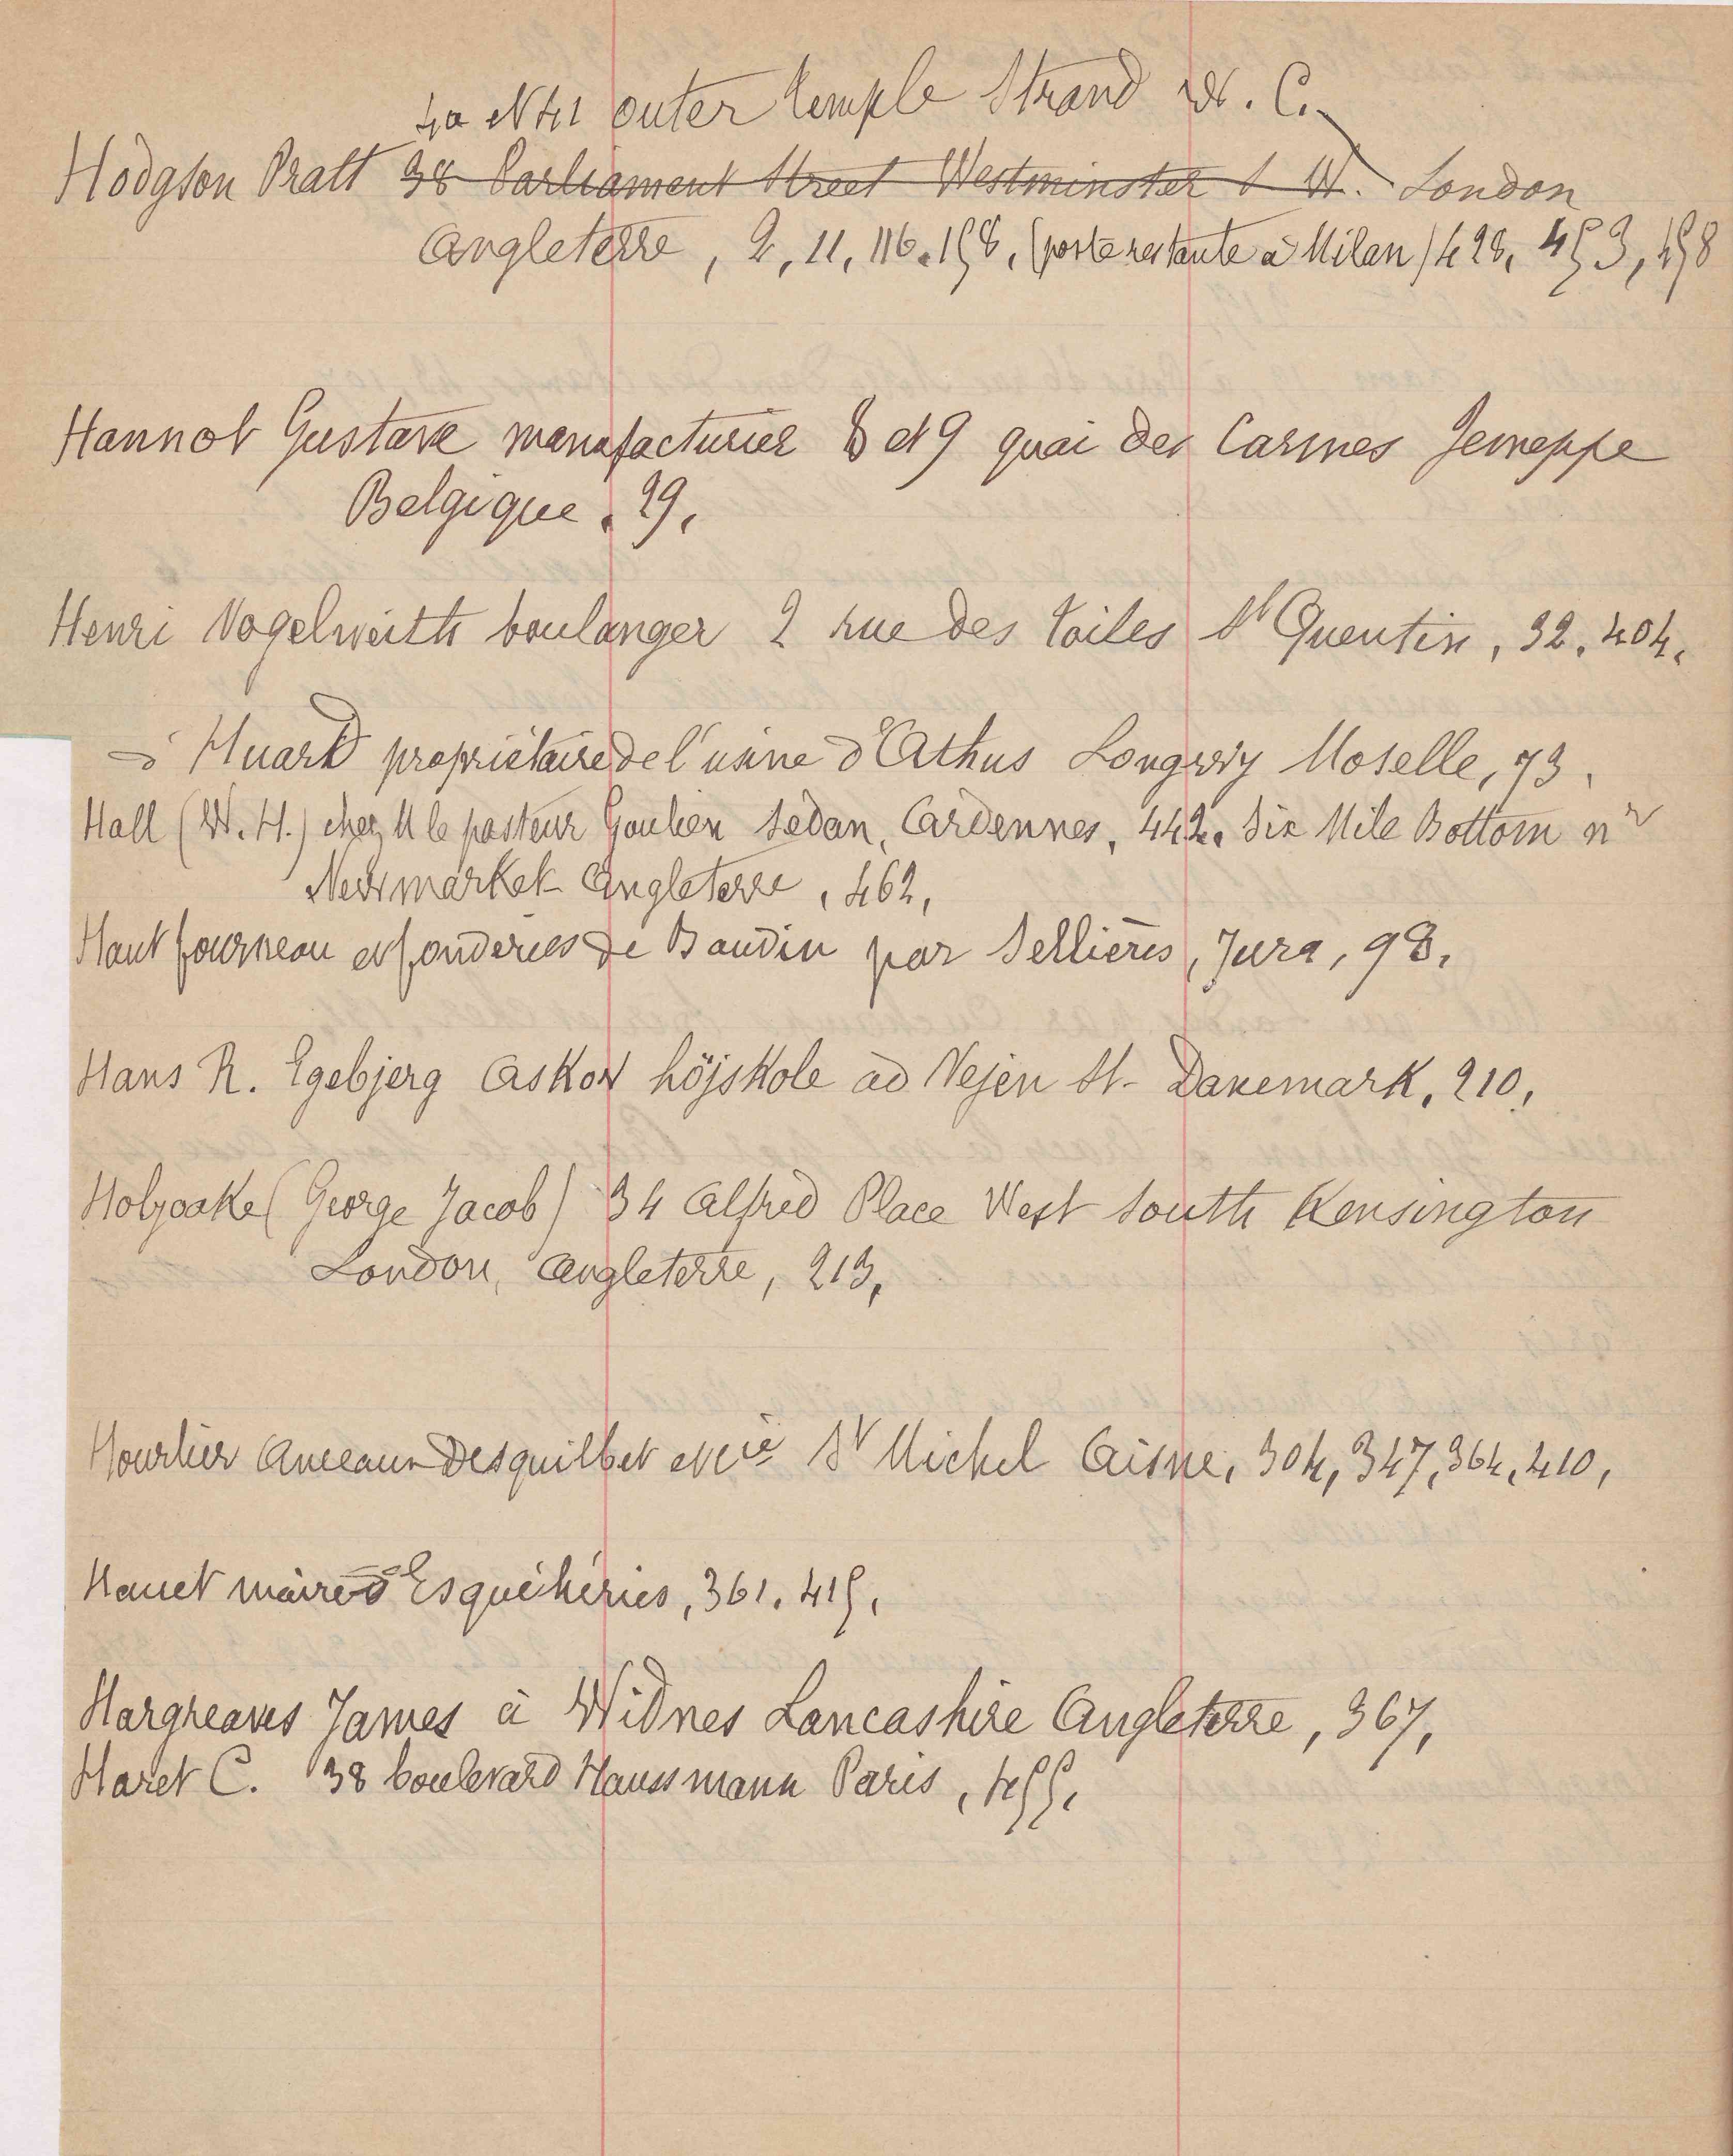 40 et 41 outer temple Strand W. C.
Hodgson Pratt 38 Parliament Street Westminster S W. London
Angleterre, 2, 11, 116. 158, (poste restante à Milan) 428, 453, 458
Hannot Gustave manufacturier 8 et 9 quai des Carmes Jemeppe
Belgique. 29,
Henri Vogelweith boulanger 2 rue des toiles St Quentin, 32, 404.
Huard propriétaire de l'usine d'Athus Longwy Moselle, 73,
Hall (W. H.) chez M le pasteur Goulden Sedan, Ardennes, 442. Six Mile Bottom nr
Newmarket Angleterre, 462,
Haut fourneau et fonderies de Baudin par Sellières, Jura, 98,
Hans R. Egebjerg Askov höjskole ad Vejen St- Danemark, 210,
Holyoake (George Jacob) 34 Alfred Place West South Kensington
London, Angleterre, 213,
Hourlier Anceaux Desquilbet et Cie St Michel Aisne, 304, 347, 364, 410,
Hauet maire d'Esquéhéries, 361, 415,
Hargreaves James à Widnes Lancashire Angleterre, 367,
Haret C. 38 boulevard Haussmann Paris, 455,